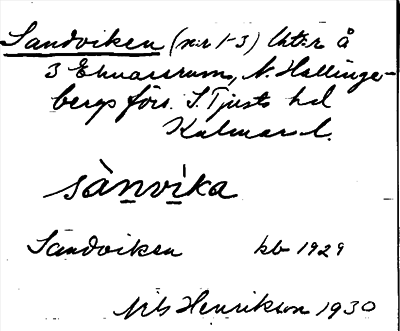 Sandviken (n:r 1-3) lht:r å
3 Ekhvarsrum, N. Hallinge-
bergs förs. S. Tjusts hd
Kalmar l.
sànvika
Sandviken kb 1929
Nils Henrikson 1930